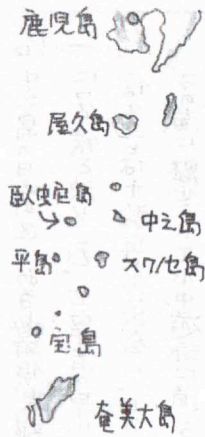 鹿児島
屋久島
臥蛇島
中之島
平島
スワノセ島
宝島
奄美大島